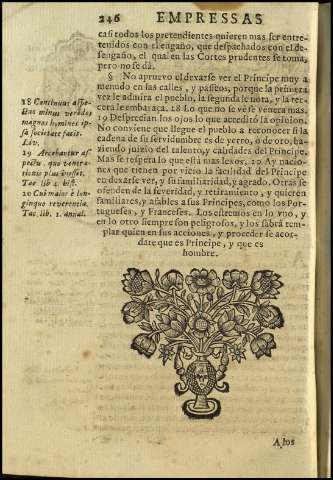 246 EMPRESSAS
casi todos los pretendientes quieren mas ser entre-
tenidos con el engaño, que despachados con el de-
sengaño, el qual en las Cortes prudentes se toma,
pero no se dà.
§ No apruevo el dexarse ver el Principe muy a
menudo en las calles, y paseos, porque la primera
vez le admira el pueblo, la segunda le nota, y la ter-
cera le embaraça. 18 Lo que no se vè se venera mas.
19 Desprecian los ojos lo que acreditò la opinion.
No conviene que llegue el pueblo a reconocer si la
cadena de su servidumbre es de yerro, o de oro, ha-
ziendo juizio del talento, y calidades del Principe.
Mas se respeta lo que està mas lexos. 20 Ay nacio-
nes que tienen por vicio la facilidad del Principe
en dexarse ver, y su familiaridad, y agrado. Otras se
ofenden de la severidad, y retiramiento, y quieren
familiares, y afables a sus Principes, como los Por-
tugueses, y Franceses. Los estremos en lo vno, y
en lo otro siempre son peligrosos, y los sabrà tem-
plar quien en sus acciones, y proceder se acor-
dare que es Principe, y que es
hombre.
18 Continuus aspe-
ctus minus verendos
magnos homines ip-
sa societate facit.
Liv.
19 Arcebantur as-
pectu, quo venera-
tionis plus inesset.
Tac. lib. 4. hist.
20 Cui maior è lon-
ginquo reverentia.
Tac. lib. 1. annal.
A los